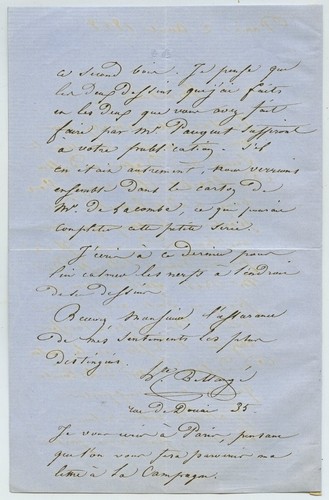 ce second bois. Je pense que
les deux dessins que j'ai faits
et les deux que vous avez fait
faire par Mr Pauquet suffiront
à votre publication. S'il
en était autrement, nous verrions
ensemble dans le carton de
Mr. de Lacombe, ce qui pourrait
compléter cette petite série.
J'écris à ce dernier pour
lui calmer les nerfs à l'endroit
de ce dessin
Recevez Monsieur l'assurance
de mes sentiments les plus
distingués.
Hte Bellangé
rue de Douai 35.
Je vous écris à Paris, pensant
que l'on vous fera parvenir ma
lettre à la Campagne.